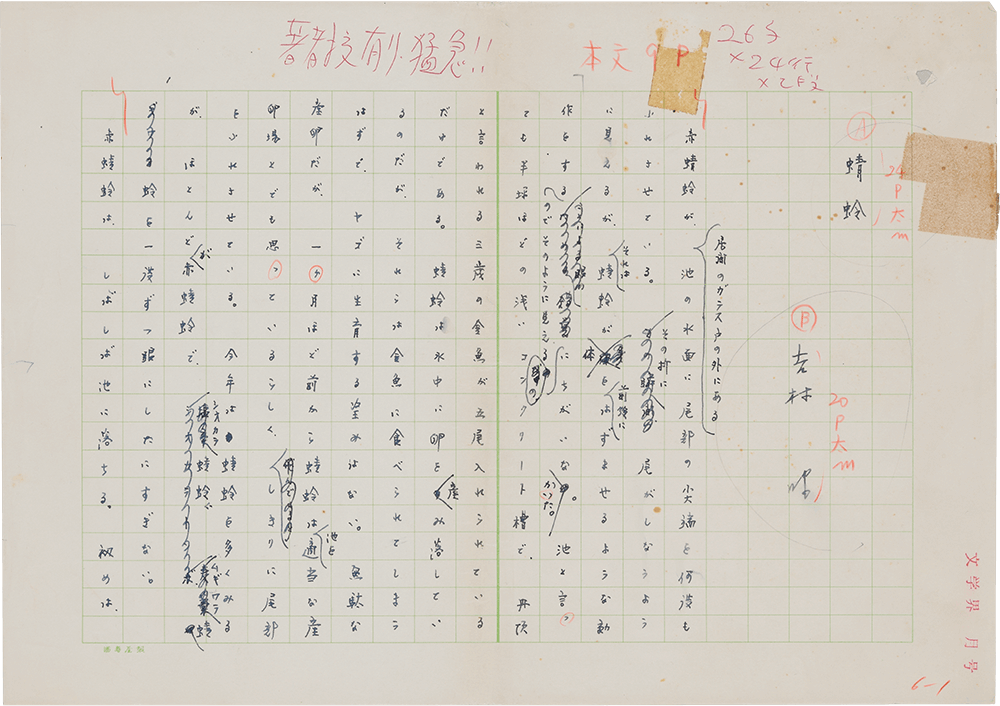 著者校有り、猛急!!
本文9P
26字
×24行
×2段
Ⓐ 蜻蛉
24P太m
Ⓑ 吉村 昭
20P太m
赤蜻蛉が、居間のガラス戸の外にある池の水面に尾部の尖端を何度も
ふれさせている。その折に尾がしなうよう
に見えるが、それは蜻蛉が体を前後にはずませるような動
作をするのでそのように見えるにちがいなかった。池と言っ
ても半坪ほどの浅いコンクリート槽で、丹頂
と言われる三歳の金魚が五尾入れられている
だけである。蜻蛉は水中に卵を産み落してい
るのだが、それらは金魚に食べられてしまう
はずで、ヤゴに生育する望みはない。無駄な
産卵だが、一ヶ月ほど前から蜻蛉は池を適当な産
卵場とでも思っているらしく、しきりに尾部
をふれさせている。今年は蜻蛉を多くみる
が、ほとんどが赤蜻蛉で、シオカラ蜻蛉、ムギワラ蜻
蛉を一度ずつ眼にしたにすぎない。
赤蜻蛉は、しばしば池に落ちる。初めは、
文学界 月号
6-1